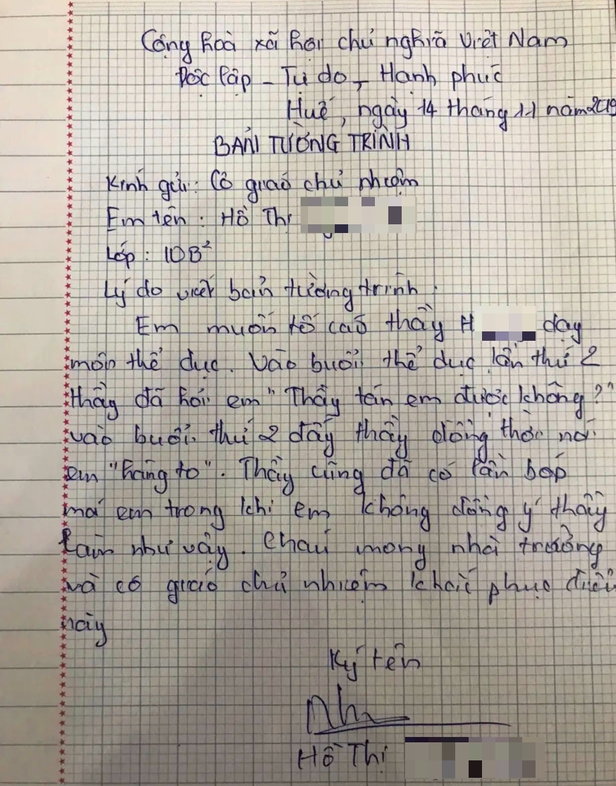 Cộng hoà xã hội chủ nghĩa Việt Nam
Độc lập - Tự do - Hạnh phúc
Huế, ngày 14 tháng 11 năm 2019
BẢN TƯỜNG TRÌNH
Kính gửi: Cô giáo chủ nhiệm
Em tên: Hồ Thị
Lớp: 10B²
Lý do viết bản tường trình:
Em muốn tố cáo thầy H dạy
môn thể dục. Vào buổi thể dục lần thứ 2
thầy đã hỏi em "Thầy tán em được không?"
vào buổi thứ 2 đấy thầy đồng thời nói
em "hàng to". Thầy cũng đã có lần bóp
má em trong khi em không đồng ý thầy
làm như vậy. Cháu mong nhà trường
và cô giáo chủ nhiệm khắc phục điều
này
Ký tên
Nh
Hồ Thị